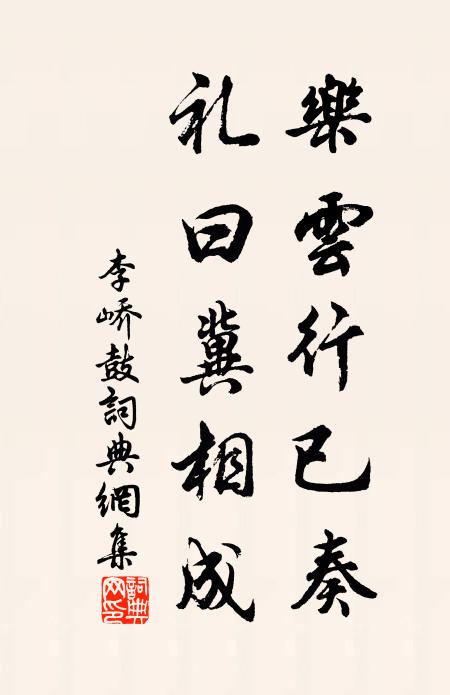 樂雲行已奏
礼曰冀相成
李嶠鼓詞典網集
詞典网印